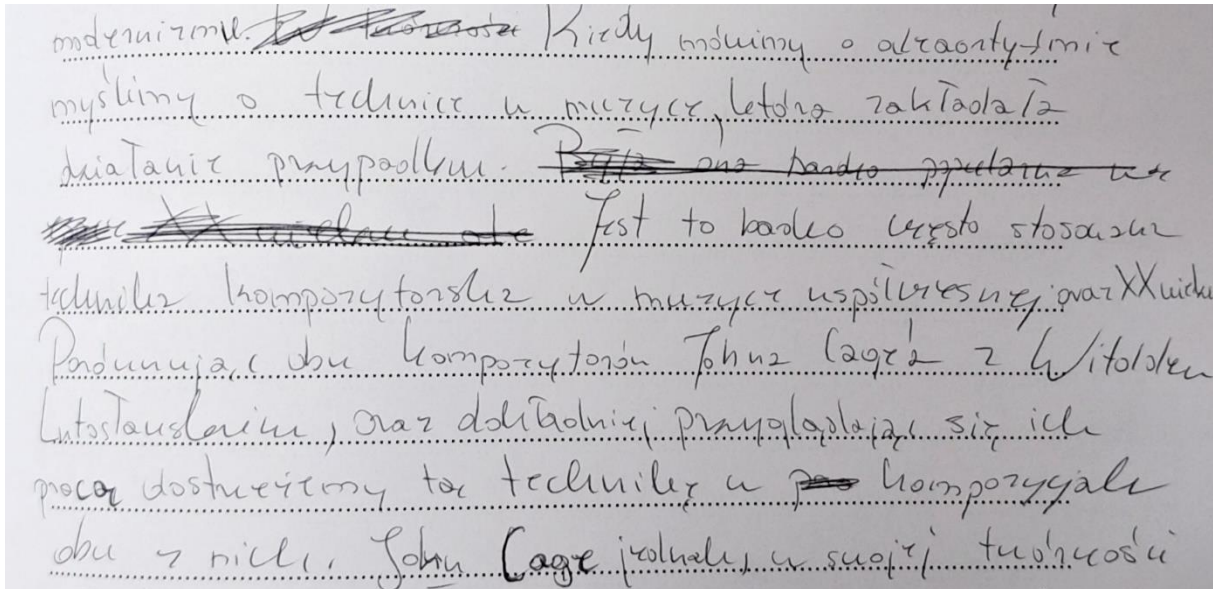 modernizmu. Kiedy mówimy o aleaontyźmie
myślimy o technice w muzyce, która zakładała
działanie przypadku. Była ona bardzo popularna w
XX wieku Jest to bardo często stosowana
technika kompozytorska w muzyce współczesnej oraz XX wieku
Porównując obu kompozytorów Johna Cage'a z Witoldem
Lutosławskim, oraz dokładniej przyglądając się ich
pracą dostrzeżemy tą technikę w kompozycjach
obu z nich. John Cage jednak, w swojej twórczości